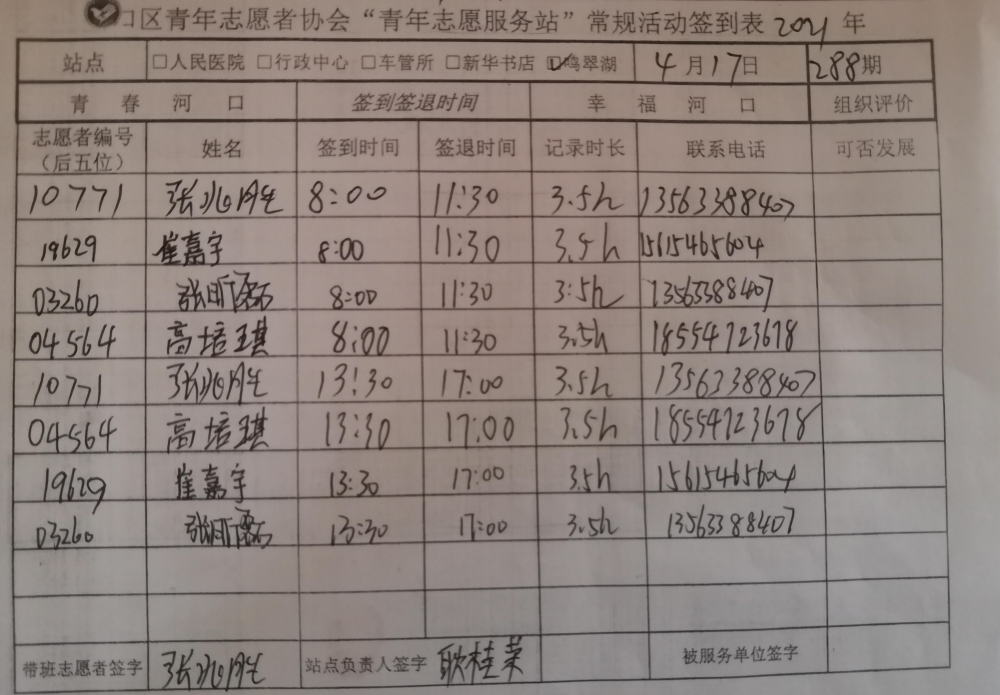 口区青年志愿者协会“青年志愿服务站”常规活动签到表 2021 年
站点 □人民医院 □行政中心 □车管所 □新华书店 ☑鸣翠湖 4月17日 288期
青春河口 签到签退时间 幸福河口 组织评价
志愿者编号（后五位） 姓名 签到时间 签退时间 记录时长 联系电话 可否发展
10771 张兆胜 8:00 11:30 3.5h 13563388407
19629 崔嘉宇 8:00 11:30 3.5h 15615465604
03260 8:00 11:30 3.5h 13563388407
04564 高培琪 8:00 11:30 3.5h 18554723678
10771 张兆胜 13:30 17:00 3.5h 13563388407
04564 高培琪 13:30 17:00 3.5h 18554723678
19629 崔嘉宇 13:30 17:00 3.5h 15615465604
03260 13:30 17:00 3.5h 13563388407
带班志愿者签字 张兆胜 站点负责人签字 耿桂荣 被服务单位签字